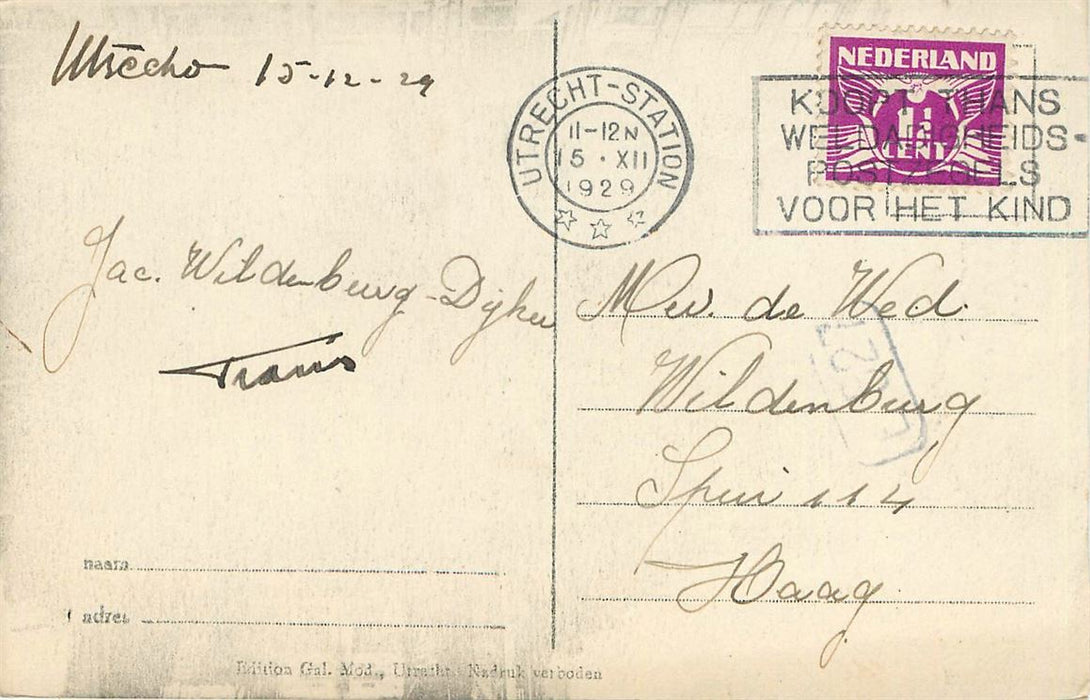 Utrecht 15-12-29
Jac. Wildenburg-Dijker
Frans
naam
adres
Edition Gal. Mod., Utrecht. Nadruk verboden
UTRECHT-STATION
11-12N
15 · XII
1929
NEDERLAND
1½
CENT
KOOPT THANS
WELDADIGHEIDS-
POSTZEGELS
VOOR HET KIND
Mev. de Wed.
Wildenburg
Spui 114
Haag